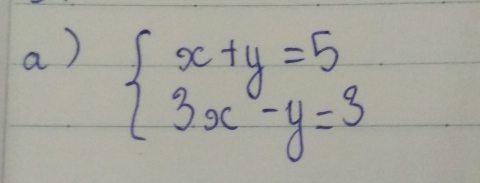 a) { x+y=5
3x-y=3